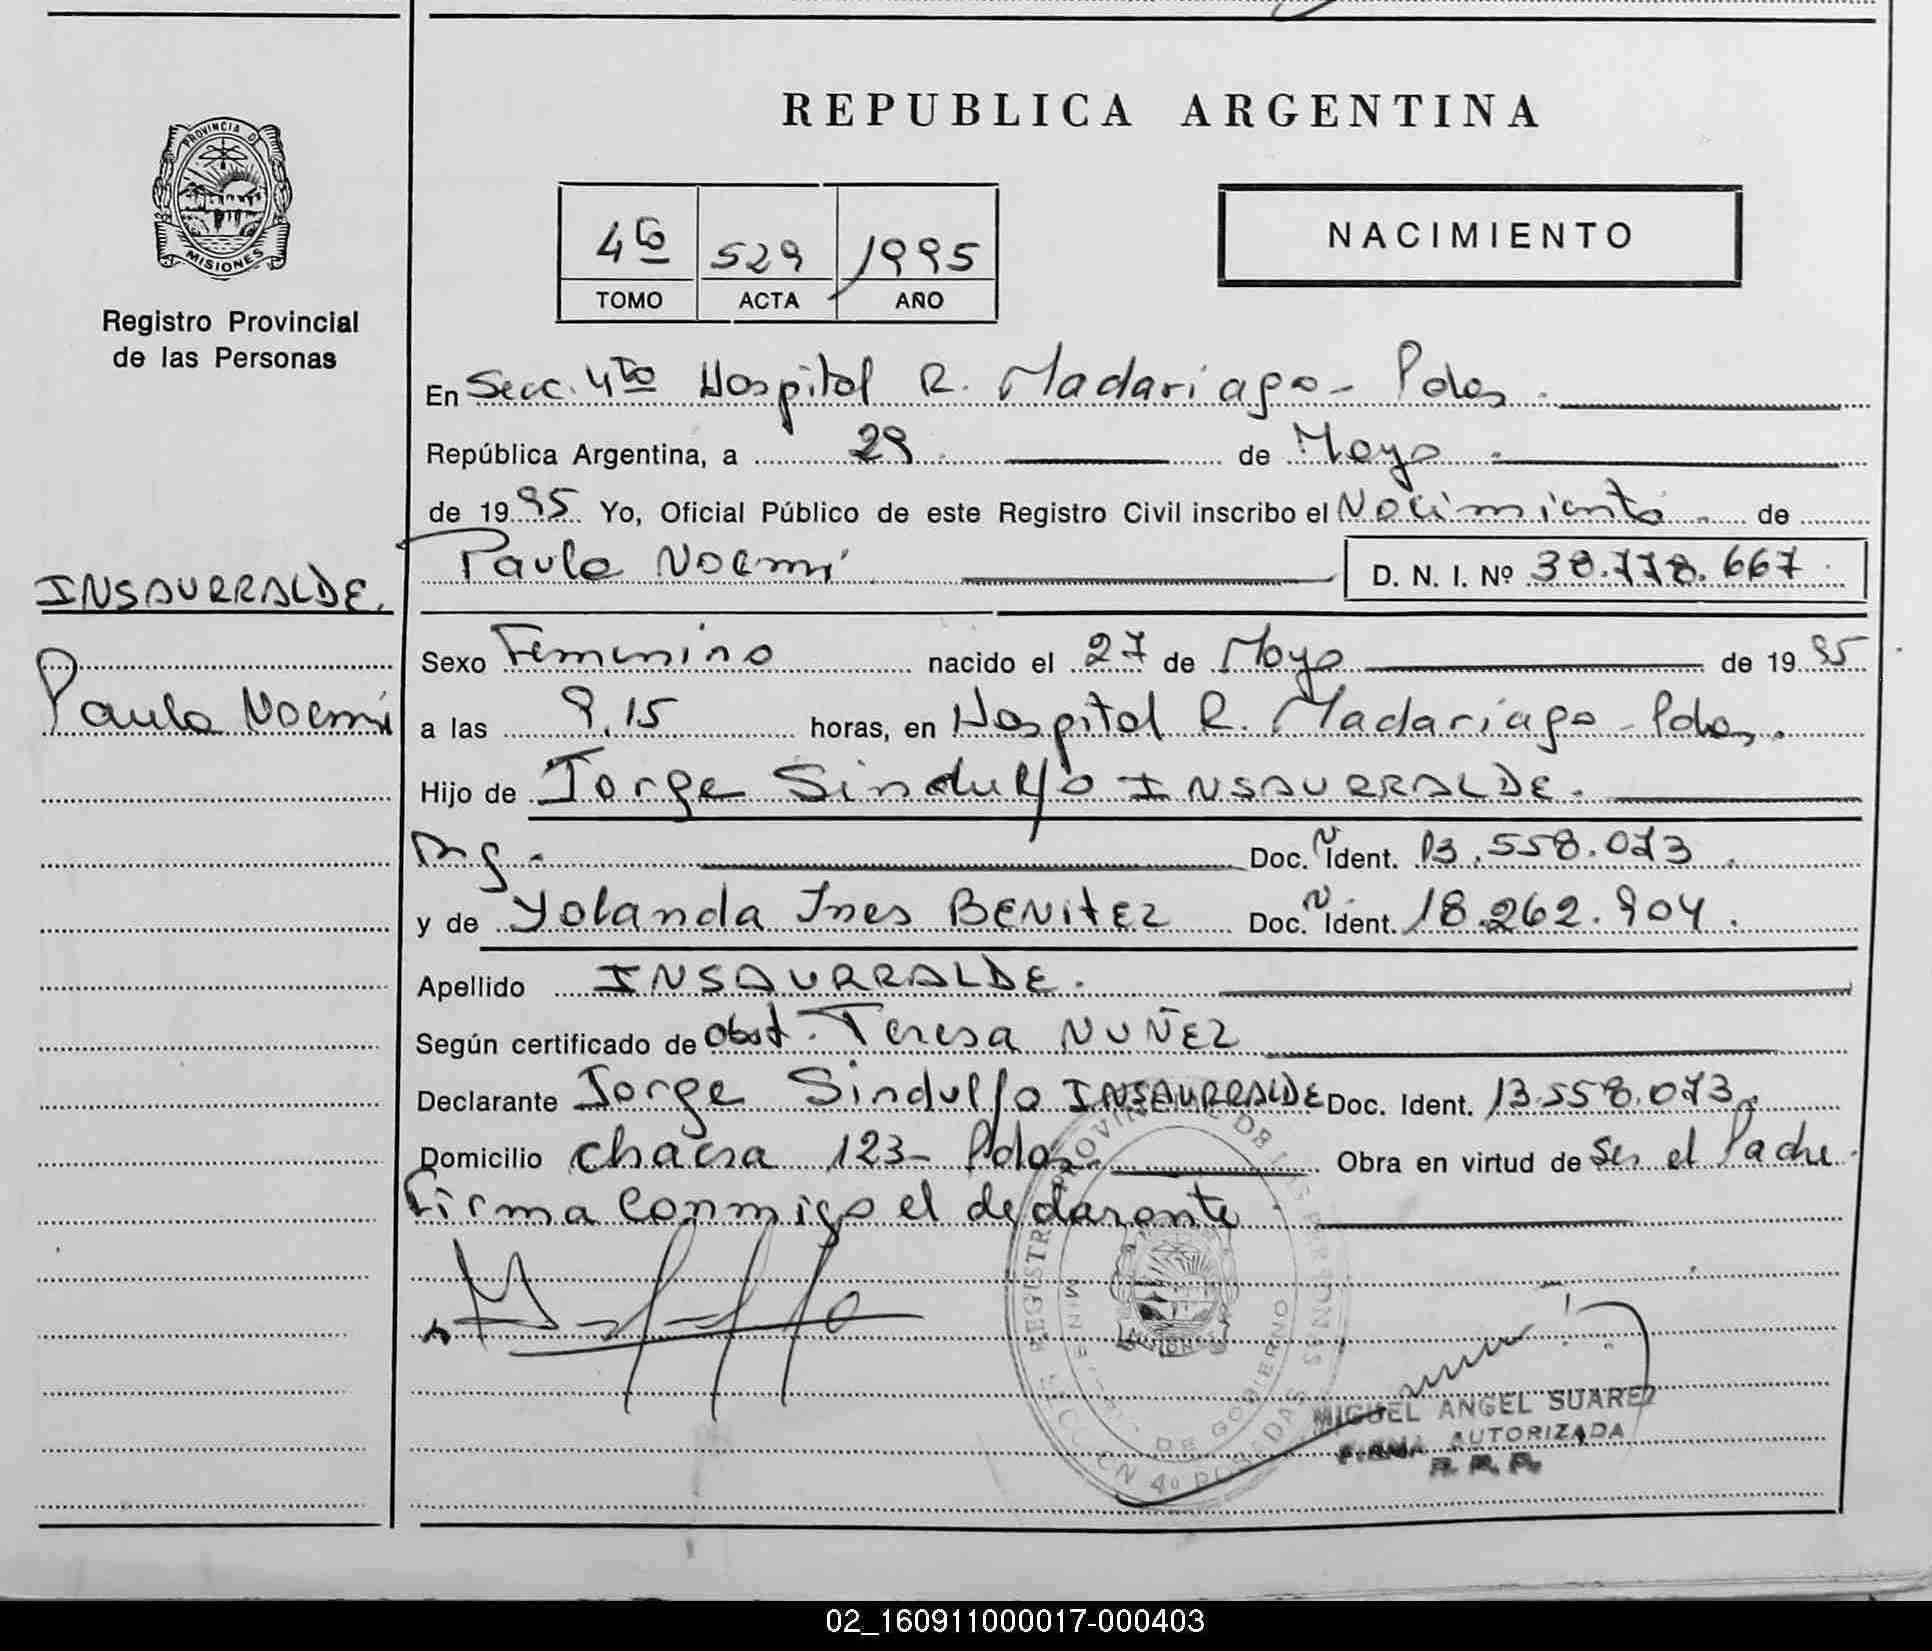 REPUBLICA ARGENTINA
PROVINCIA DE
MISIONES
Registro Provincial
de las Personas
4to 529 1995
TOMO ACTA AÑO
NACIMIENTO
En Secc. 4to Hospital R. Madariaga - Pdas.
República Argentina, a 29 de Mayo
de 1995 Yo, Oficial Público de este Registro Civil inscribo el Nacimiento de
Paula Noemi
D. N. I. Nº 38.778.667
INSAURRALDE.
Paula Noemi
Sexo Femenino nacido el 27 de Mayo de 1995
a las 9.15 horas, en Hospital R. Madariaga - Pdas.
Hijo de Jorge Sindulfo INSAURRALDE.
Arg. Doc. N Ident. 13.558.073
y de Yolanda Ines BENITEZ Doc. N Ident. 18.262.904.
Apellido INSAURRALDE.
Según certificado de obst. Teresa NUÑEZ
Declarante Jorge Sindulfo INSAURRALDE Doc. Ident. 13.558.073.
Domicilio chacra 123 - Pdas. Obra en virtud de ser el Padre.
Firma conmigo el declarante.
MINISTERIO DE GOBIERNO
MIGUEL ANGEL SUAREZ
FIRMA AUTORIZADA
R. P. P.
02_160911000017-000403